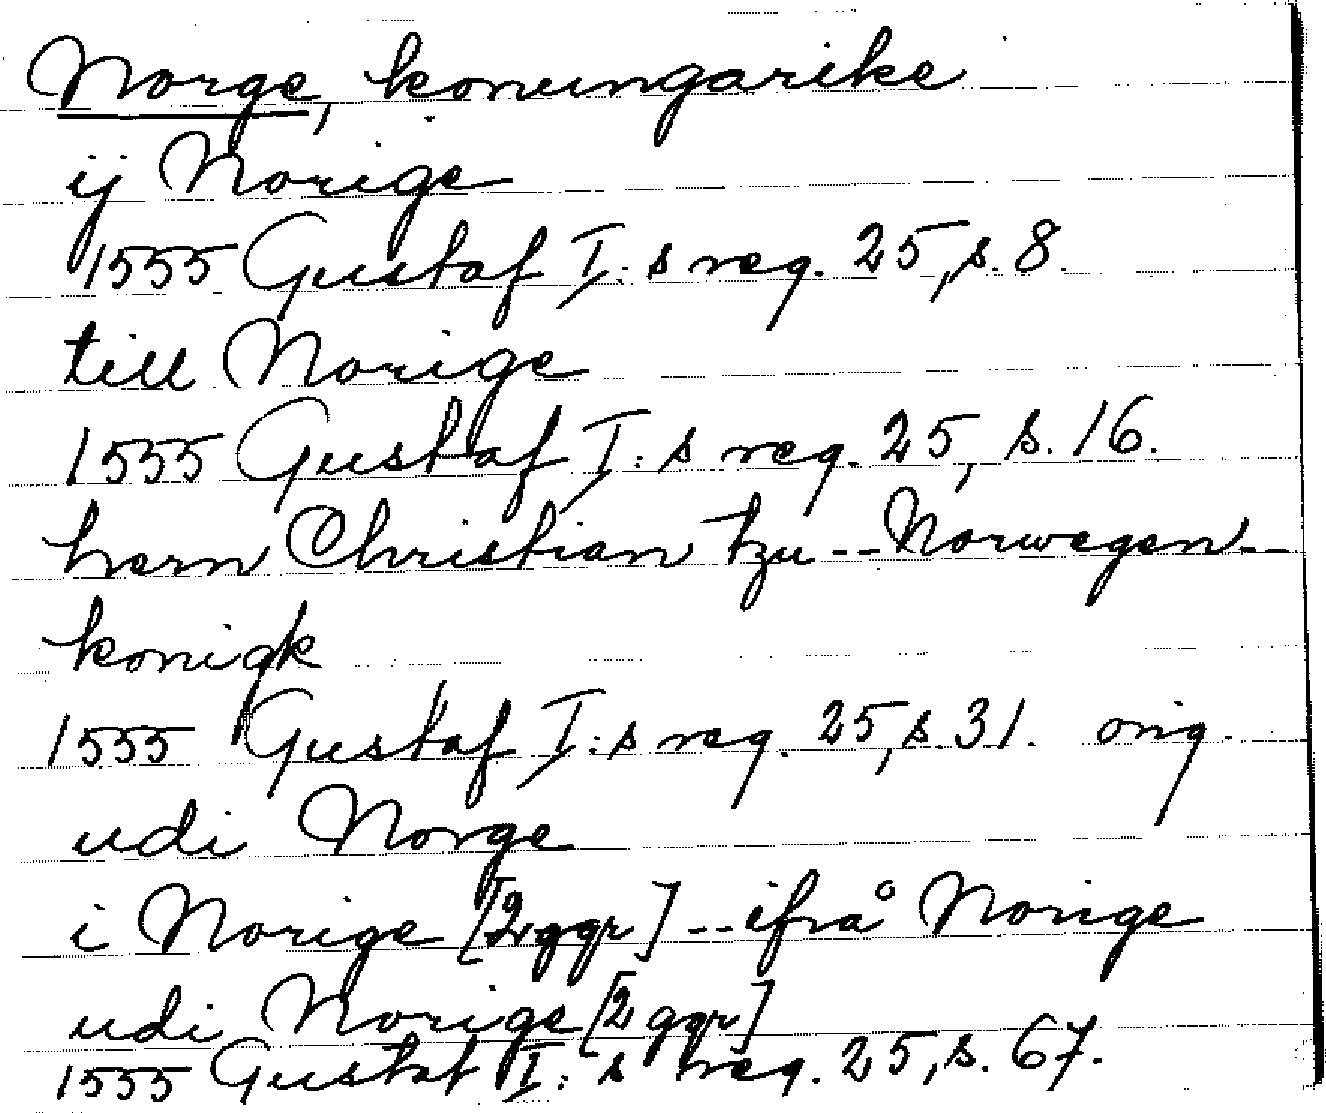 Norge, konungarike
ij Norige
1555 Gustaf I:s reg. 25, s. 8.
till Norige
1555 Gustaf I:s reg. 25, s. 16.
hern Christian tzu -- Norwegen --
konigk
1555 Gustaf I:s reg. 25, s. 31. orig.
udi Norge
i Norige [2 ggr] -- ifrå Norige
udi Norige [2 ggr]
1555 Gustaf I:s reg. 25, s. 67.